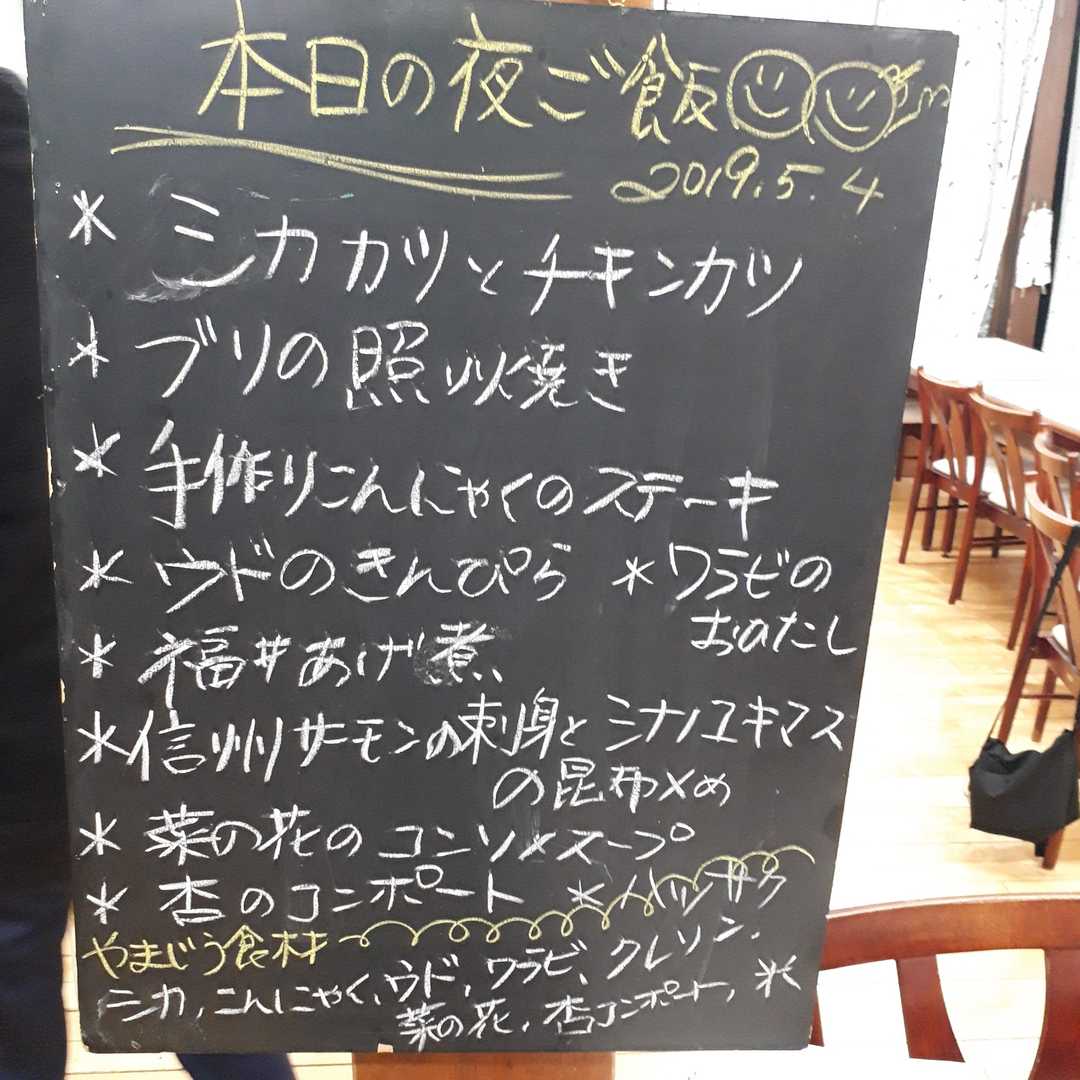 本日の夜ご飯
2019.5.4
* シカカツとチキンカツ
* ブリの照り焼き
* 手作りこんにゃくのステーキ
* ウドのきんぴら * ワラビの
おのたし
* 福井あげ煮
* 信州サーモンの刺身と ミナノユキマス
の昆布〆め
* 菜の花の コンソメスープ
* 杏のコンポート *
やまじう食材
シカ, こんにゃく、ウド, ワラビ、クレソン、
菜の花, 杏コンポート, 米